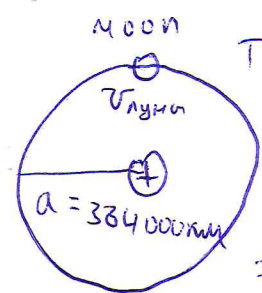 MOON
T
υ луны
a = 384000км
=